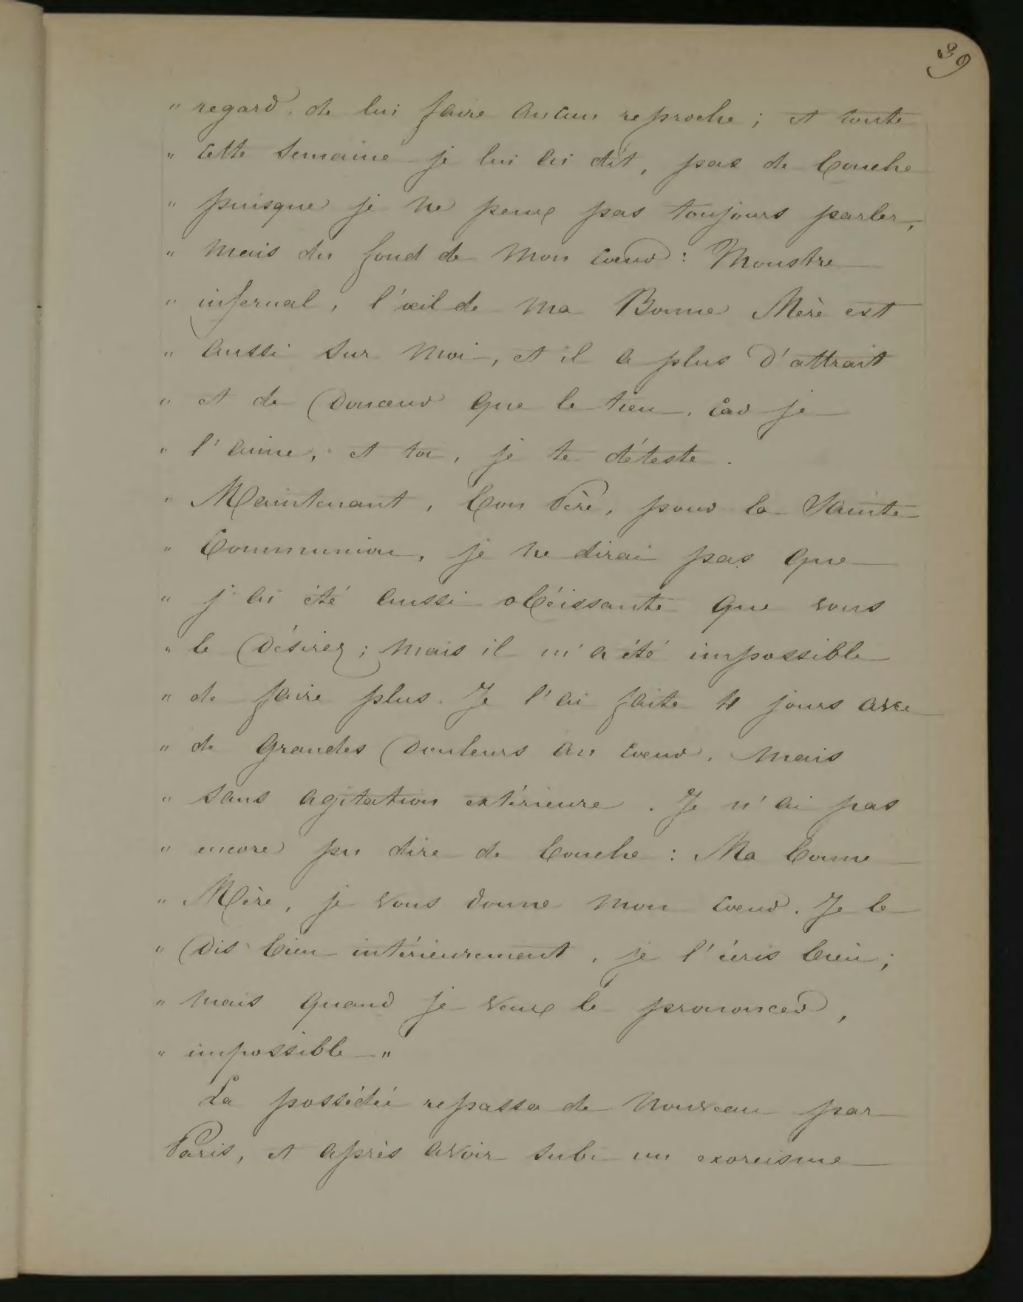 39
" regard, de lui faire aucun reproche ; et toute
" cette semaine je lui ai dit, pas de bouche
" puisque je ne peux pas toujours parler,
" mais du fond de mon cœur : Monstre
" infernal, l'œil de ma Bonne Mère est
" aussi sur moi, et il a plus d'attrait
" et de Douceur que le tien, car je
" l'aime, et toi, je te déteste.
" Maintenant, bon Père, pour la Sainte
" Communion, je ne dirai pas que
" j'ai été aussi obéissante que vous
" le Désirez ; mais il m'a été impossible
" de faire plus. Je l'ai faite 4 jours avec
" de grandes Douleurs au cœur, mais
" sans agitation extérieure. Je n'ai pas
" encore pu dire de bouche : Ma bonne
" Mère, je vous donne mon cœur. Je le
" Dis bien intérieurement, je l'écris bien ;
" mais quand je veux le prononcer,
" impossible "
La possédée repassa de nouveau par
Paris, et après avoir subi un exorcisme